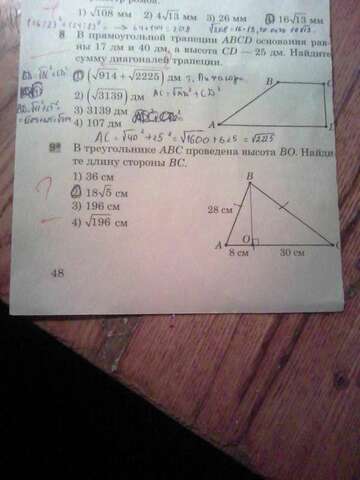 1) √108 мм 2) 4√13 мм 3) 26 мм 4) 16√13 мм
8 В прямоугольной трапеции ABCD основания рав-
ны 17 дм и 40 дм, а высота CD — 25 дм. Найдите
сумму диагоналей трапеции.
1) (√914 + √2225) дм
2) (√3139) дм AC = √AD² + CD²
3) 3139 дм
4) 107 дм
AC = √40² + 25² = √1600 + 625 = √2225
B
A
9* В треугольнике ABC проведена высота BO. Найди-
те длину стороны BC.
1) 36 см
2) 18√5 см
3) 196 см
4) √196 см
B
28 см
A
O
8 см 30 см
48